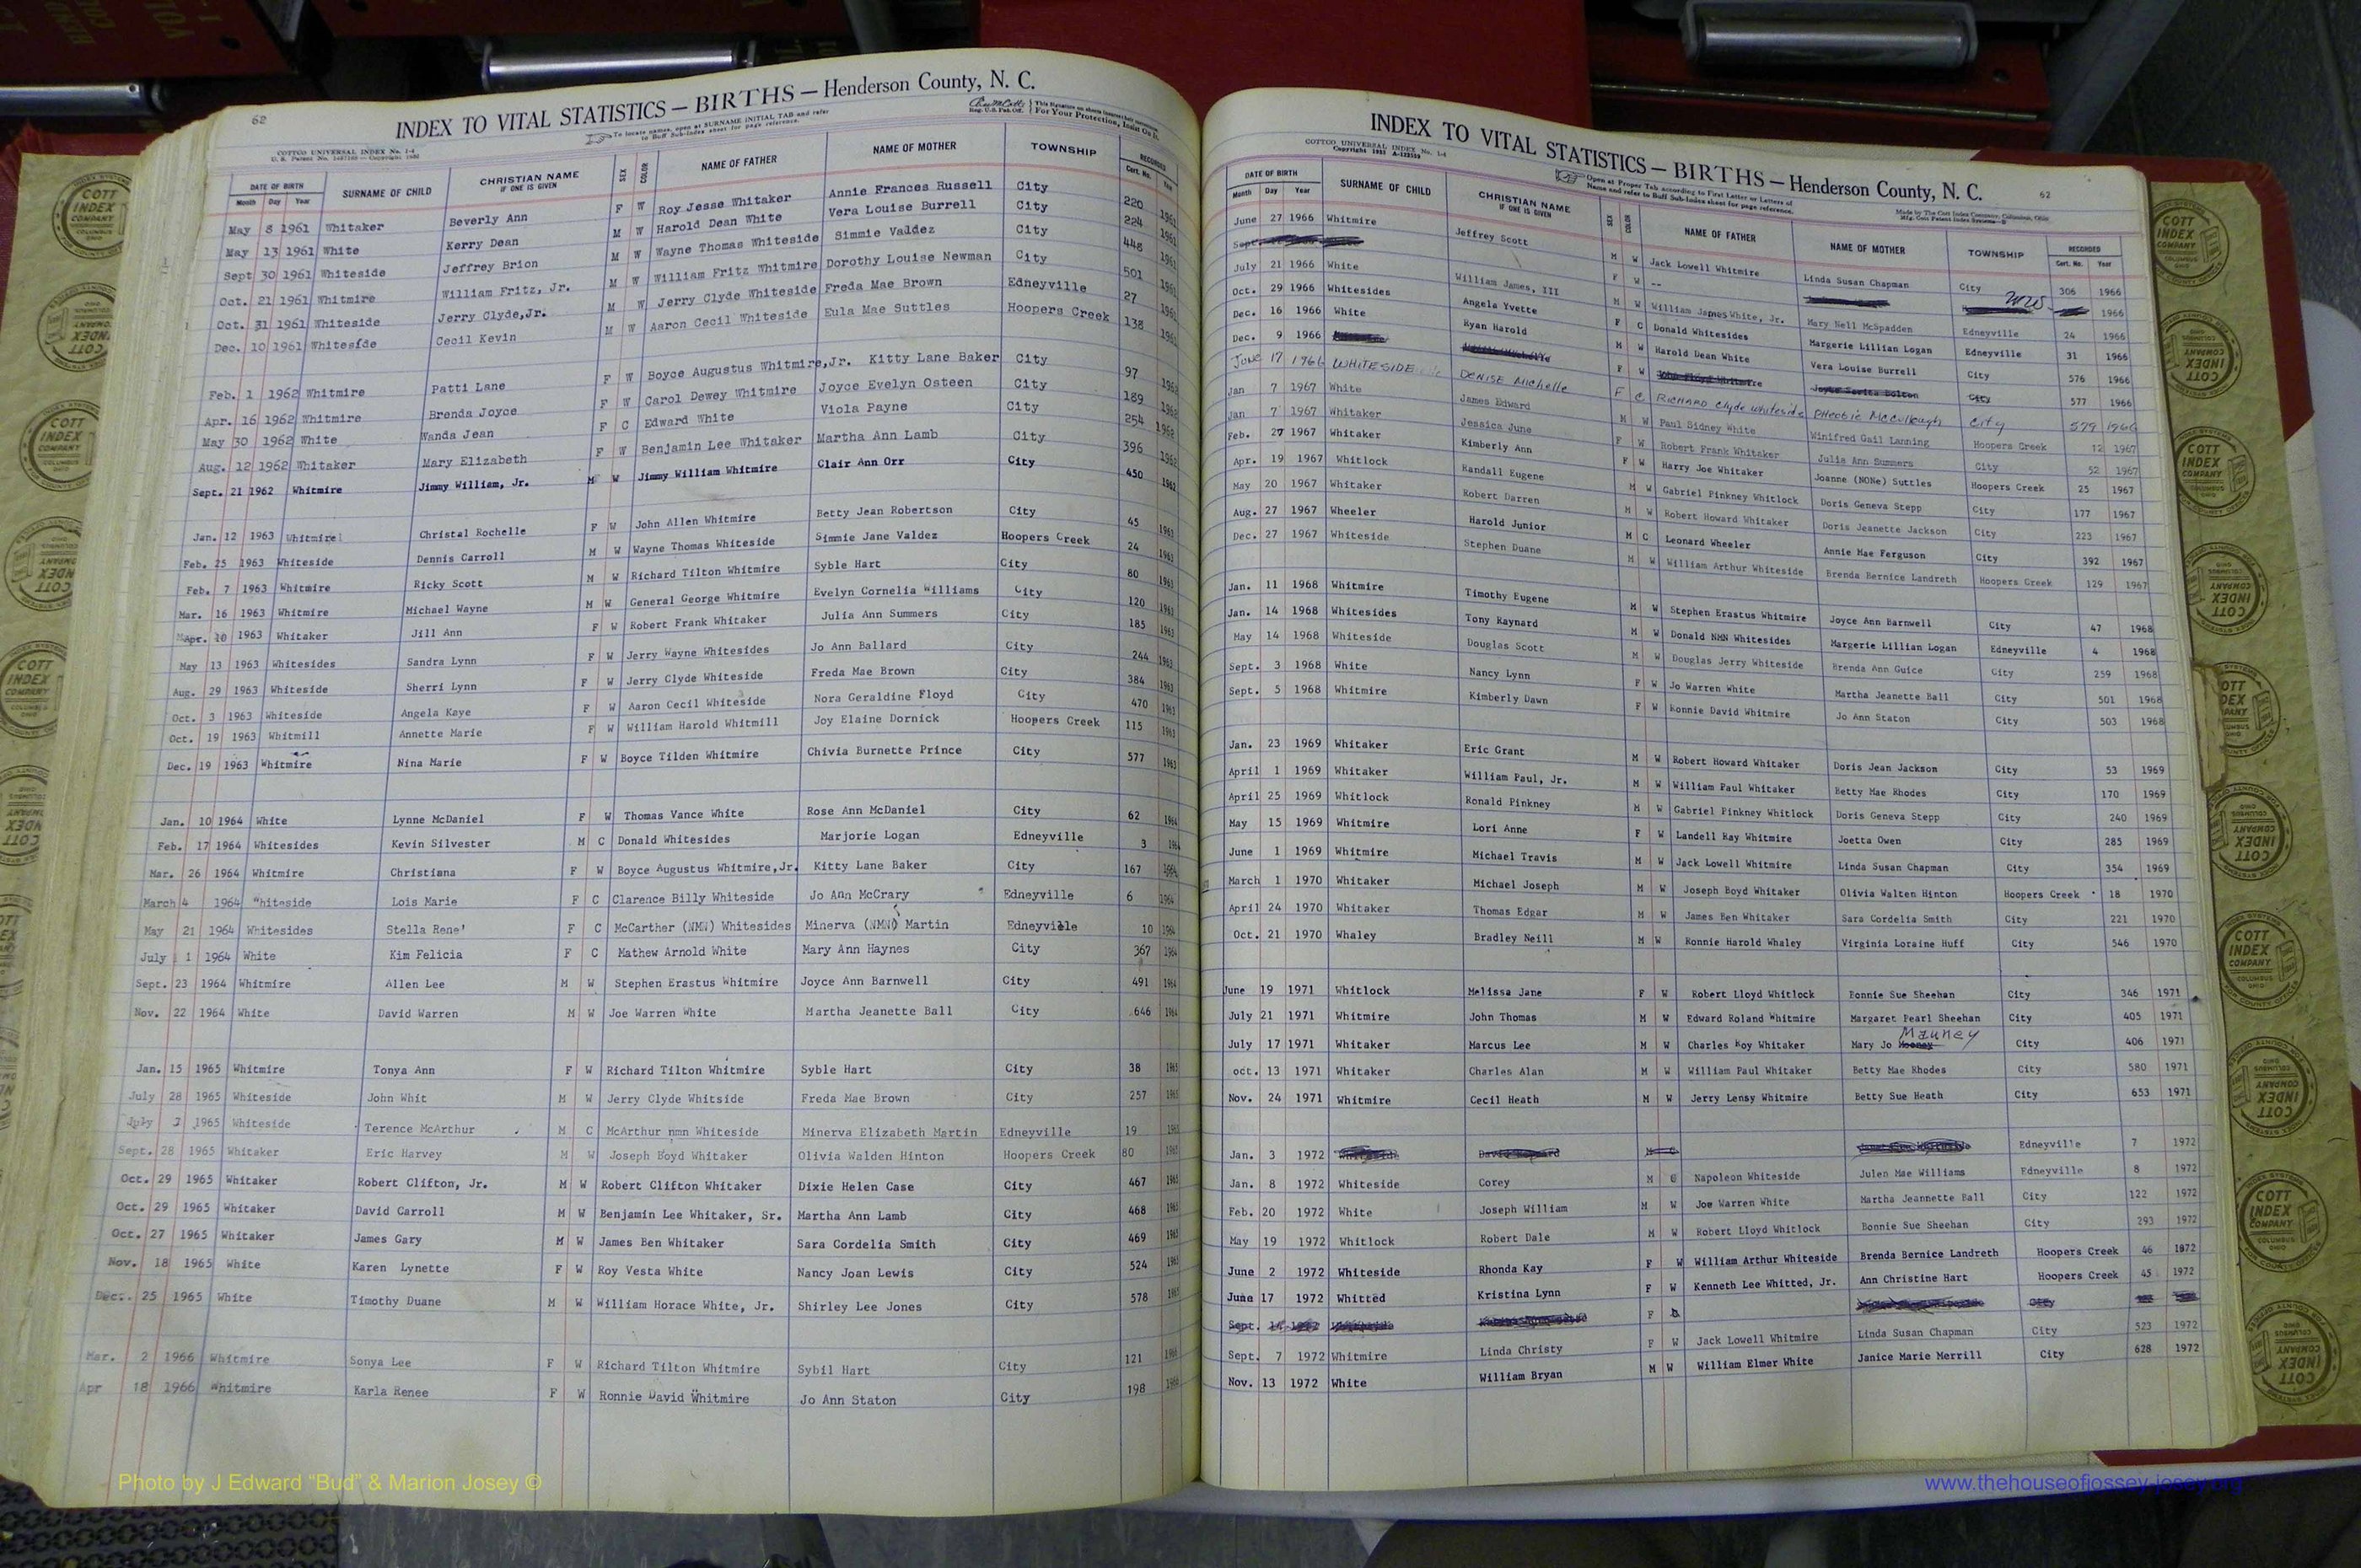 62
INDEX TO VITAL STATISTICS — BIRTHS — Henderson County, N. C.
COTTCO UNIVERSAL INDEX No. 1-4
To locate names, open at SURNAME INITIAL TAB and refer
to Buff Sub-Index sheet for page reference.
For Your Protection, Insist On It.
DATE OF BIRTH SURNAME OF CHILD CHRISTIAN NAME IF ONE IS GIVEN SEX COLOR NAME OF FATHER NAME OF MOTHER TOWNSHIP RECORDED
Month Day Year Cert. No. Year
May 8 1961 Whitaker Beverly Ann F W Roy Jesse Whitaker Annie Frances Russell City 220 1961
May 13 1961 White Kerry Dean M W Harold Dean White Vera Louise Burrell City 224 1961
Sept 30 1961 Whiteside Jeffrey Brion M W Wayne Thomas Whiteside Simmie Valdez City 448 1961
Oct. 21 1961 Whitmire William Fritz, Jr. M W William Fritz Whitmire Dorothy Louise Newman City 501 1961
Oct. 31 1961 Whiteside Jerry Clyde,Jr. M W Jerry Clyde Whiteside Freda Mae Brown Edneyville 27 1961
Dec. 10 1961 Whiteside Cecil Kevin M W Aaron Cecil Whiteside Eula Mae Suttles Hoopers Creek 138 1961
Feb. 1 1962 Whitmire Patti Lane F W Boyce Augustus Whitmire,Jr. Kitty Lane Baker City 97 1962
Apr. 16 1962 Whitmire Brenda Joyce F W Carol Dewey Whitmire Joyce Evelyn Osteen City 189 1962
May 30 1962 White Wanda Jean F C Edward White Viola Payne City 254 1962
Aug. 12 1962 Whitaker Mary Elizabeth F W Benjamin Lee Whitaker Martha Ann Lamb City 396 1962
Sept. 21 1962 Whitmire Jimmy William, Jr. M W Jimmy William Whitmire Clair Ann Orr City 450 1962
Jan. 12 1963 Whitmire Christal Rochelle F W John Allen Whitmire Betty Jean Robertson City 45 1963
Feb. 25 1963 Whiteside Dennis Carroll M W Wayne Thomas Whiteside Simmie Jane Valdez Hoopers Creek 24 1963
Feb. 7 1963 Whitmire Ricky Scott M W Richard Tilton Whitmire Syble Hart City 80 1963
Mar. 16 1963 Whitmire Michael Wayne M W General George Whitmire Evelyn Cornelia Williams City 120 1963
Apr. 10 1963 Whitaker Jill Ann F W Robert Frank Whitaker Julia Ann Summers City 185 1963
May 13 1963 Whitesides Sandra Lynn F W Jerry Wayne Whitesides Jo Ann Ballard City 244 1963
Aug. 29 1963 Whiteside Sherri Lynn F W Jerry Clyde Whiteside Freda Mae Brown City 384 1963
Oct. 3 1963 Whiteside Angela Kaye F W Aaron Cecil Whiteside Nora Geraldine Floyd City 470 1963
Oct. 19 1963 Whitmill Annette Marie F W William Harold Whitmill Joy Elaine Dornick Hoopers Creek 115 1963
Dec. 19 1963 Whitmire Nina Marie F W Boyce Tilden Whitmire Chivia Burnette Prince City 577 1963
Jan. 10 1964 White Lynne McDaniel F W Thomas Vance White Rose Ann McDaniel City 62 1964
Feb. 17 1964 Whitesides Kevin Silvester M C Donald Whitesides Marjorie Logan Edneyville 3 1964
Mar. 26 1964 Whitmire Christiana F W Boyce Augustus Whitmire,Jr. Kitty Lane Baker City 167 1964
March 4 1964 "hiteside Lois Marie F C Clarence Billy Whiteside Jo Ann McCrary Edneyville 6 1964
May 21 1964 Whitesides Stella Rene' F C McCarther (NMN) Whitesides Minerva (NMN) Martin Edneyville 10 1964
July 1 1964 White Kim Felicia F C Mathew Arnold White Mary Ann Haynes City 367 1964
Sept. 23 1964 Whitmire Allen Lee M W Stephen Erastus Whitmire Joyce Ann Barnwell City 491 1964
Nov. 22 1964 White David Warren M W Joe Warren White Martha Jeanette Ball City 646 1964
Jan. 15 1965 Whitmire Tonya Ann F W Richard Tilton Whitmire Syble Hart City 38 1965
July 28 1965 Whiteside John Whit M W Jerry Clyde Whitside Freda Mae Brown City 257 1965
July 3 1965 Whiteside Terence McArthur M C McArthur nmn Whiteside Minerva Elizabeth Martin Edneyville 19 1965
Sept. 28 1965 Whitaker Eric Harvey M W Joseph Boyd Whitaker Olivia Walden Hinton Hoopers Creek 80 1965
Oct. 29 1965 Whitaker Robert Clifton, Jr. M W Robert Clifton Whitaker Dixie Helen Case City 467 1965
Oct. 29 1965 Whitaker David Carroll M W Benjamin Lee Whitaker, Sr. Martha Ann Lamb City 468 1965
Oct. 27 1965 Whitaker James Gary M W James Ben Whitaker Sara Cordelia Smith City 469 1965
Nov. 18 1965 White Karen Lynette F W Roy Vesta White Nancy Joan Lewis City 524 1965
Dec. 25 1965 White Timothy Duane M W William Horace White, Jr. Shirley Lee Jones City 578 1965
Mar. 2 1966 Whitmire Sonya Lee F W Richard Tilton Whitmire Sybil Hart City 121 1966
Apr 18 1966 Whitmire Karla Renee F W Ronnie David Whitmire Jo Ann Staton City 198 1966
INDEX TO VITAL STATISTICS — BIRTHS — Henderson County, N. C.
62
COTTCO UNIVERSAL INDEX No. 1-4
Open at Proper Tab according to First Letter or Letters of
Name and refer to Buff Sub-Index sheet for page reference.
Made by The Cott Index Company, Columbus, Ohio
DATE OF BIRTH SURNAME OF CHILD CHRISTIAN NAME IF ONE IS GIVEN SEX COLOR NAME OF FATHER NAME OF MOTHER TOWNSHIP RECORDED
Month Day Year Cert. No. Year
June 27 1966 Whitmire Jeffrey Scott M W Jack Lowell Whitmire Linda Susan Chapman City 306 1966
Sept. F W -- 1966
July 21 1966 White William James, III M W William James White, Jr. Mary Nell McSpadden Edneyville 24 1966
Oct. 29 1966 Whitesides Angela Yvette F C Donald Whitesides Margerie Lillian Logan Edneyville 31 1966
Dec. 16 1966 White Ryan Harold M W Harold Dean White Vera Louise Burrell City 576 1966
Dec. 9 1966 F W City 577 1966
June 17 1966 WHITESIDE Denise Michelle F C Richard Clyde Whiteside Pheobie McCullough City 579 1966
Jan 7 1967 White James Edward M W Paul Sidney White Winifred Gail Lanning Hoopers Creek 12 1967
Jan 7 1967 Whitaker Jessica June F W Robert Frank Whitaker Julia Ann Summers City 52 1967
Feb. 27 1967 Whitaker Kimberly Ann F W Harry Joe Whitaker Joanne (NONe) Suttles Hoopers Creek 25 1967
Apr. 19 1967 Whitlock Randall Eugene M W Gabriel Pinkney Whitlock Doris Geneva Stepp City 177 1967
May 20 1967 Whitaker Robert Darren M W Robert Howard Whitaker Doris Jeanette Jackson City 223 1967
Aug. 27 1967 Wheeler Harold Junior M C Leonard Wheeler Annie Mae Ferguson City 392 1967
Dec. 27 1967 Whiteside Stephen Duane M W William Arthur Whiteside Brenda Bernice Landreth Hoopers Creek 129 1967
Jan. 11 1968 Whitmire Timothy Eugene M W Stephen Erastus Whitmire Joyce Ann Barnwell City 47 1968
Jan. 14 1968 Whitesides Tony Raynard M W Donald NMN Whitesides Margerie Lillian Logan Edneyville 4 1968
May 14 1968 Whiteside Douglas Scott M W Douglas Jerry Whiteside Brenda Ann Guice City 259 1968
Sept. 3 1968 White Nancy Lynn F W Jo Warren White Martha Jeanette Ball City 501 1968
Sept. 5 1968 Whitmire Kimberly Dawn F W Ronnie David Whitmire Jo Ann Staton City 503 1968
Jan. 23 1969 Whitaker Eric Grant M W Robert Howard Whitaker Doris Jean Jackson City 53 1969
April 1 1969 Whitaker William Paul, Jr. M W William Paul Whitaker Betty Mae Rhodes City 170 1969
April 25 1969 Whitlock Ronald Pinkney M W Gabriel Pinkney Whitlock Doris Geneva Stepp City 240 1969
May 15 1969 Whitmire Lori Anne F W Landell Ray Whitmire Joetta Owen City 285 1969
June 1 1969 Whitmire Michael Travis M W Jack Lowell Whitmire Linda Susan Chapman City 354 1969
March 1 1970 Whitaker Michael Joseph M W Joseph Boyd Whitaker Olivia Walten Hinton Hoopers Creek 18 1970
April 24 1970 Whitaker Thomas Edgar M W James Ben Whitaker Sara Cordelia Smith City 221 1970
Oct. 21 1970 Whaley Bradley Neill M W Ronnie Harold Whaley Virginia Loraine Huff City 546 1970
June 19 1971 Whitlock Melissa Jane F W Robert Lloyd Whitlock Bonnie Sue Sheehan City 346 1971
July 21 1971 Whitmire John Thomas M W Edward Roland Whitmire Margaret Pearl Sheehan City 405 1971
July 17 1971 Whitaker Marcus Lee M W Charles Roy Whitaker Mary Jo Mauney City 406 1971
oct. 13 1971 Whitaker Charles Alan M W William Paul Whitaker Betty Mae Rhodes City 580 1971
Nov. 24 1971 Whitmire Cecil Heath M W Jerry Lensy Whitmire Betty Sue Heath City 653 1971
Jan. 3 1972 M C Edneyville 7 1972
Jan. 8 1972 Whiteside Corey M C Napoleon Whiteside Julen Mae Williams Edneyville 8 1972
Feb. 20 1972 White Joseph William M W Joe Warren White Martha Jeannette Ball City 122 1972
May 19 1972 Whitlock Robert Dale M W Robert Lloyd Whitlock Bonnie Sue Sheehan City 293 1972
June 2 1972 Whiteside Rhonda Kay F W William Arthur Whiteside Brenda Bernice Landreth Hoopers Creek 46 1872
June 17 1972 Whitted Kristina Lynn F W Kenneth Lee Whitted, Jr. Ann Christine Hart Hoopers Creek 45 1972
Sept. F City
Sept. 7 1972 Whitmire Linda Christy F W Jack Lowell Whitmire Linda Susan Chapman City 523 1972
Nov. 13 1972 White William Bryan M W William Elmer White Janice Marie Merrill City 628 1972
Photo by J Edward “Bud” & Marion Josey ©
www.thehouseofjossey-josey.org